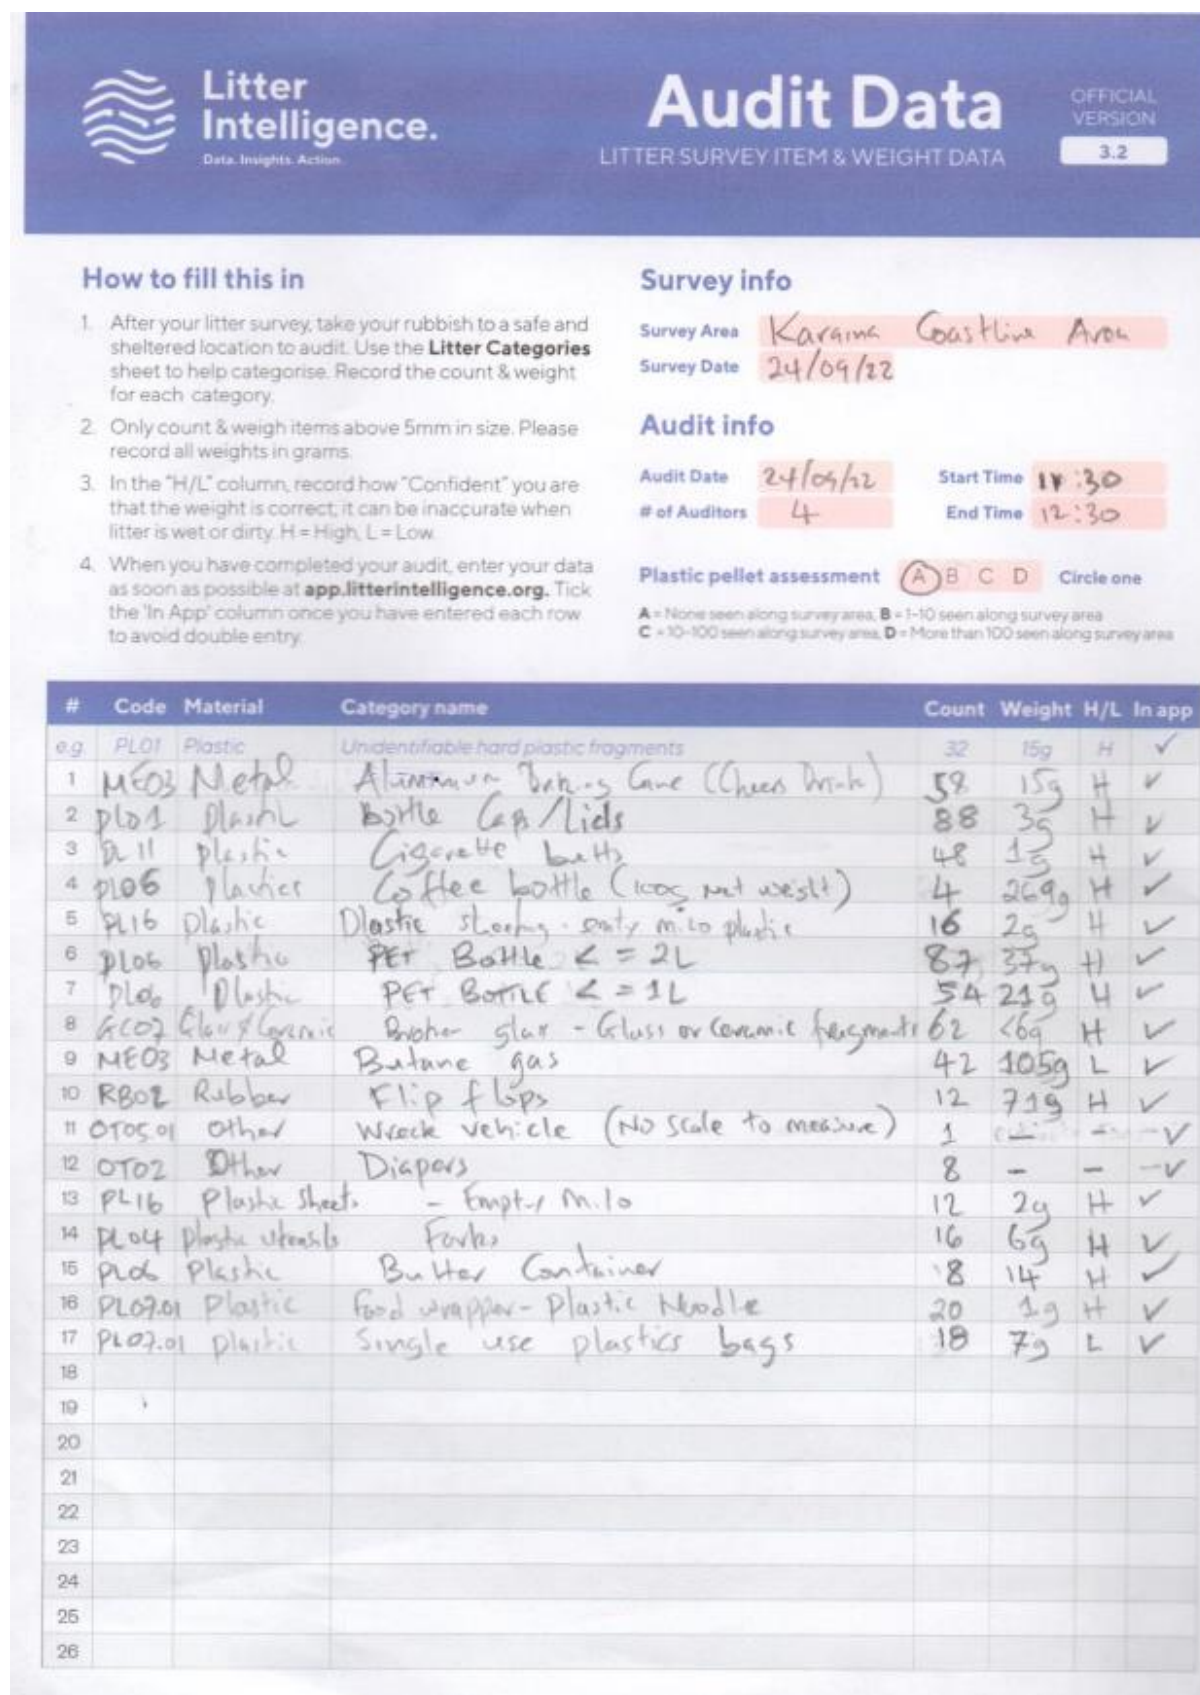 Litter
Intelligence.
Data. Insights. Action.
Audit Data
LITTER SURVEY ITEM & WEIGHT DATA
OFFICIAL
VERSION
3.2
How to fill this in
1. After your litter survey, take your rubbish to a safe and
sheltered location to audit. Use the Litter Categories
sheet to help categorise. Record the count & weight
for each category.
2. Only count & weigh items above 5mm in size. Please
record all weights in grams.
3. In the "H/L" column, record how "Confident" you are
that the weight is correct, it can be inaccurate when
litter is wet or dirty. H = High, L = Low.
4. When you have completed your audit, enter your data
as soon as possible at app.litterintelligence.org. Tick
the 'In App' column once you have entered each row
to avoid double entry.
Survey info
Survey Area Coastline
Survey Date 24/09/22
Audit info
Audit Date 24/09/22 Start Time :30
# of Auditors 4 End Time 12:30
Plastic pellet assessment A B C D Circle one
A = None seen along survey area, B = 1-10 seen along survey area
C = 10-100 seen along survey area, D = More than 100 seen along survey area
# Code Material Category name Count Weight H/L In app
e.g. PL01 Plastic Unidentifiable hard plastic fragments 32 15g H ✓
1 ME03 Metal 58 15g H ✓
2 PL01 Bottle Caps/Lids 88 3g H ✓
3 PL11 Plastic Cigarette butts 48 1g H ✓
4 PL06 Coffee bottle (100g net weight) 4 269g H ✓
5 PL16 Plastic Plastic plastic 16 2g H ✓
6 PL06 Plastic PET Bottle <= 2L 87 37g H ✓
7 PL06 Plastic PET BOTTLE <= 1L 54 21g H ✓
8 GC02 Glass or Ceramic fragments 62 H ✓
9 ME03 Metal Butane gas 42 105g L ✓
10 RB02 Rubber Flip flops 12 71g H ✓
11 OT05.01 Other Wreck vehicle (No scale to measure) 1 — – –✓
12 OT02 Other Diapers 8 – – –✓
13 PL16 Plastic Sheets - Empty Milo 12 2g H ✓
14 PL04 plastic utensils Forks 16 6g H ✓
15 PL06 Plastic Butter Container 8 14 H ✓
16 PL07.01 Plastic Food wrapper - Plastic Noodle 20 1g H ✓
17 PL07.01 plastic Single use plastics bags 18 7g L ✓
18
19
20
21
22
23
24
25
26